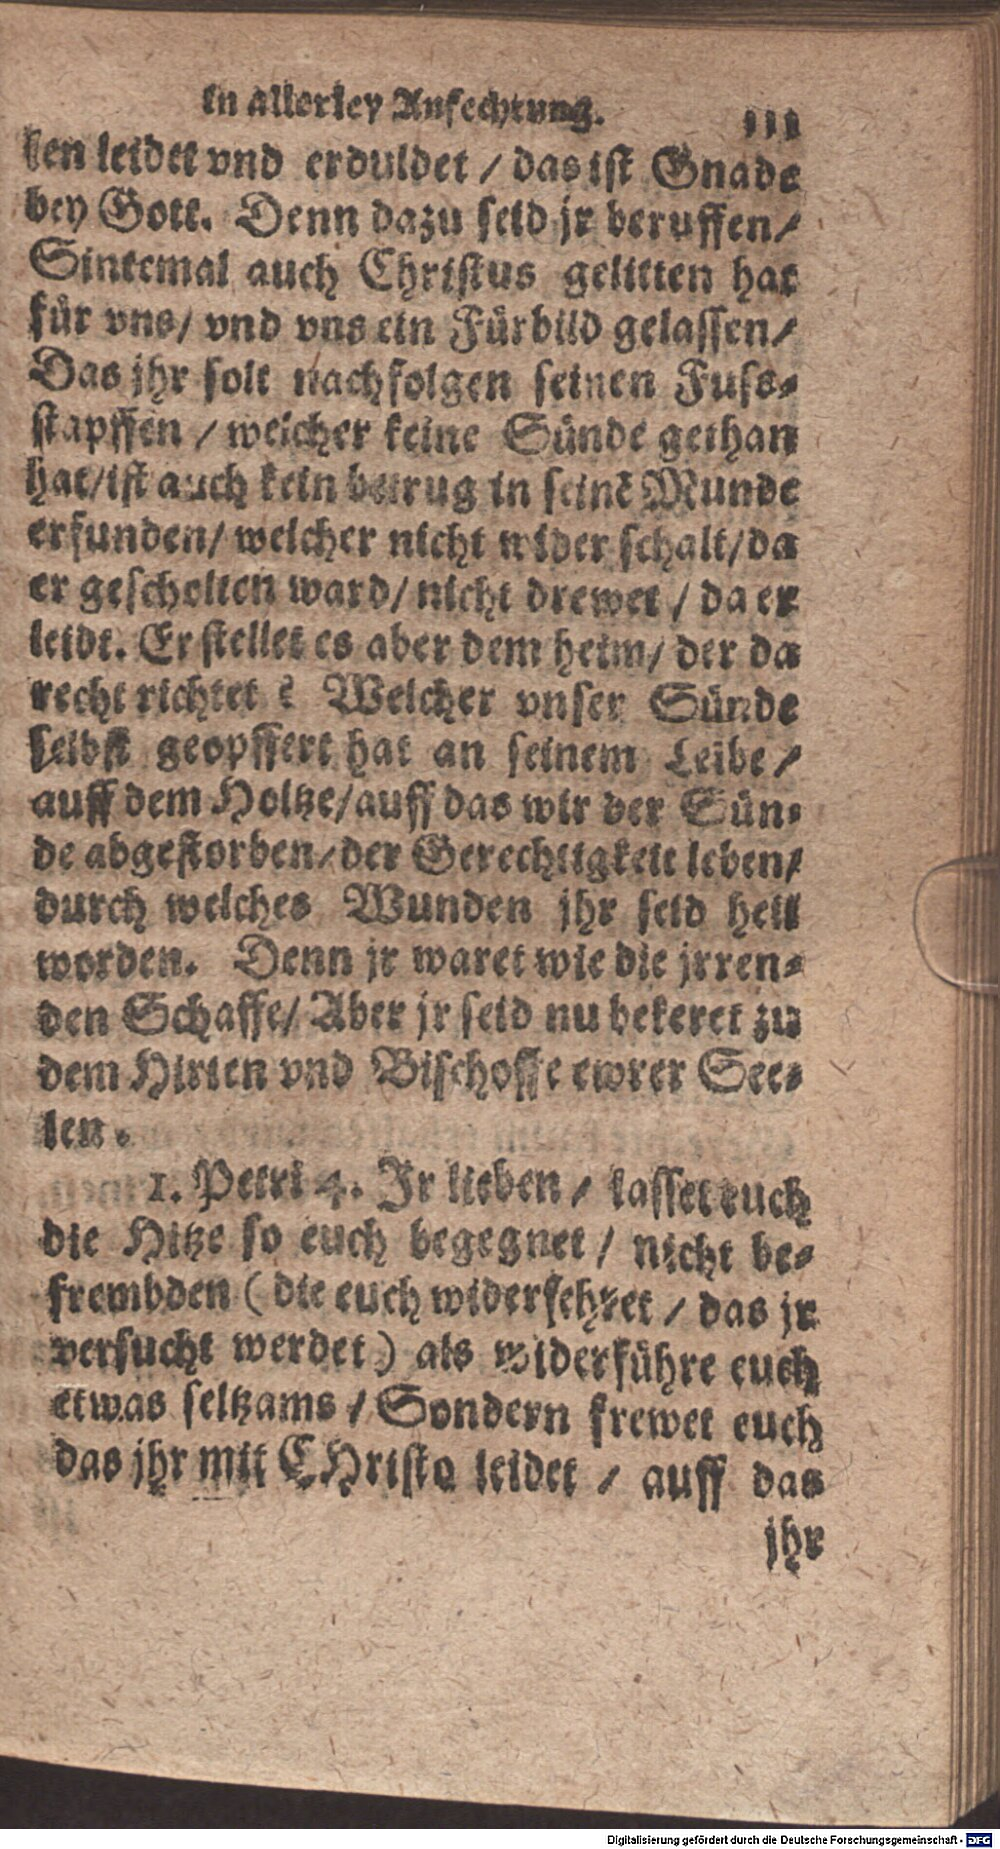 in allerley Anfechtung. 111
ken leidet vnd erduldet / das ist Gnade
bey Gott. Denn dazu seid jr beruffen /
Sintemal auch Christus gelitten hat
für vns / vnd vns ein Fürbild gelassen /
Das jhr solt nachfolgen seinen Fuss-
stapffen / welcher keine Sünde gethan
hat / ist auch kein betrug in seinē Munde
erfunden / welcher nicht wider schalt / da
er gescholten ward / nicht drewet / da er
leidt. Er stellet es aber dem heim / der da
recht richtet : Welcher vnser Sünde
selbst geopffert hat an seinem Leibe /
auff dem Holtze / auff das wir der Sün-
de abgestorben / der Gerechtigkeit leben /
durch welches Wunden jhr seid heil
worden. Denn jr waret wie die jrren-
den Schaffe / Aber jr seid nu bekeret zu
dem Hirten vnd Bischoffe ewrer See-
len.
1. Petri 4. Ir lieben / lasset euch
die Hitze so euch begegnet / nicht be-
frembden ( die euch widerfehret / das jr
versucht werdet ) als widerführe euch
etwas seltzams / Sondern frewet euch
das jhr mit CHristo leidet / auff das
jhr
Digitalisierung gefördert durch die Deutsche Forschungsgemeinschaft - DFG